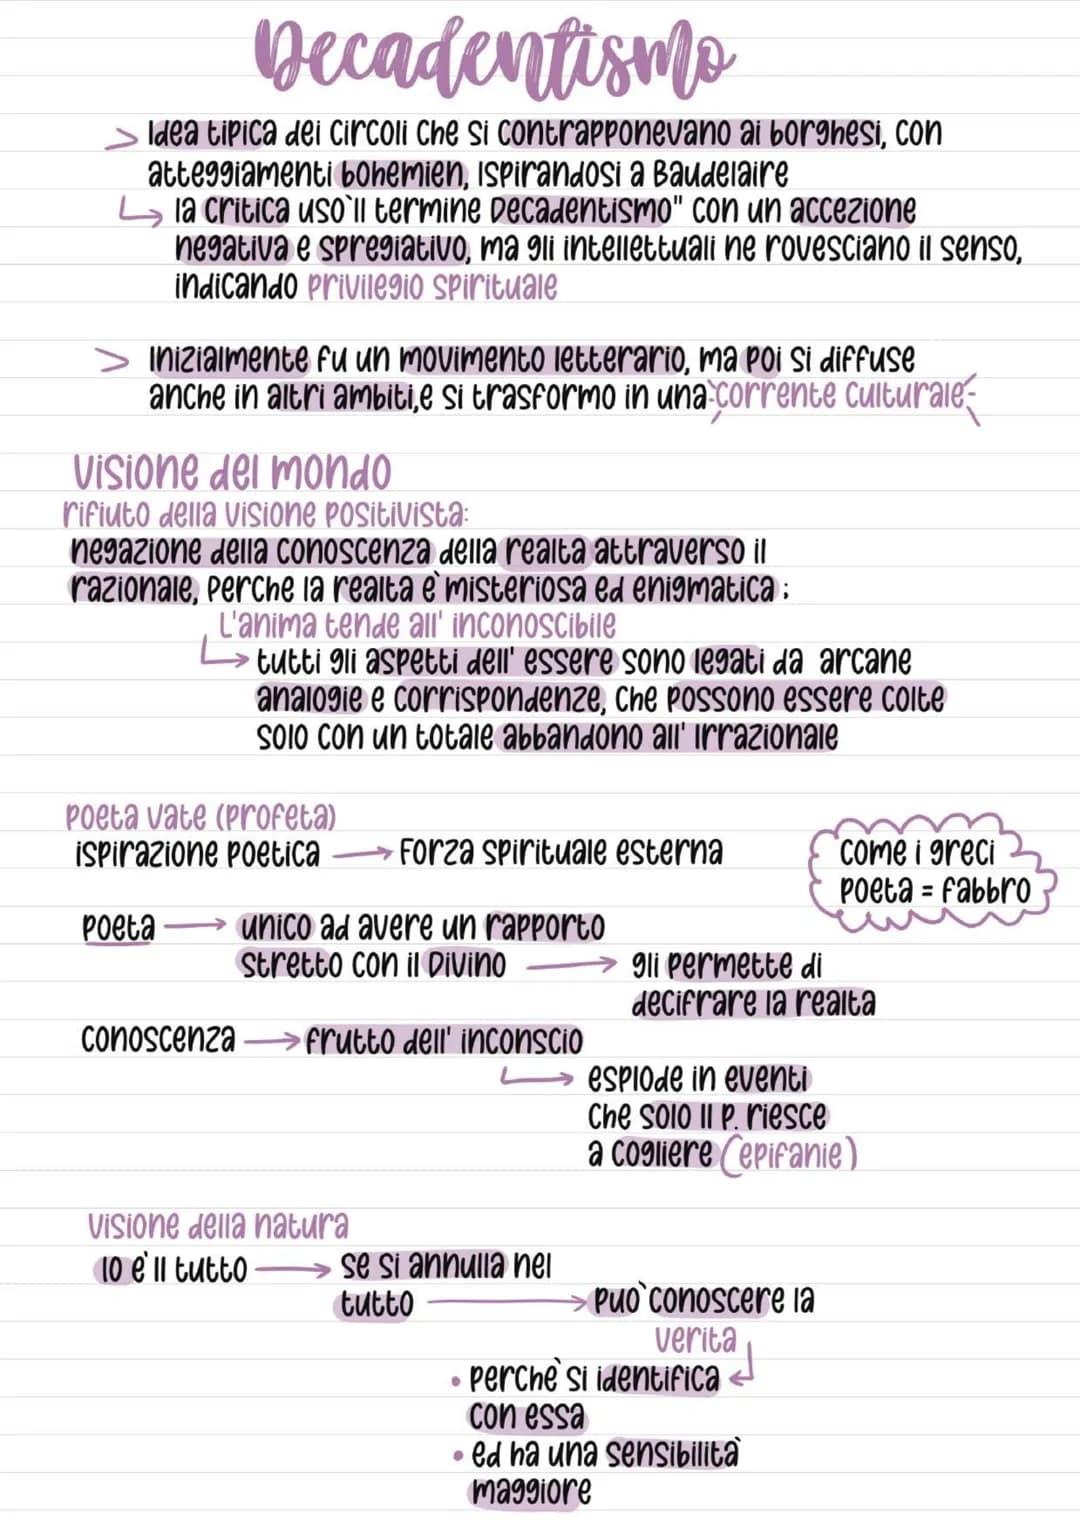 Decadentismo
> Idea tipica dei circoli che si contrapponevano ai borghesi, con
atteggiamenti bohemien, Ispirandosi a Baudelaire
la critica uso`il termine Decadentismo" con un accezione
negativa e spregiativo, ma gli intellettuali ne rovesciano il senso,
indicando privilegio spirituale
> Inizialmente fu un movimento letterario, ma poi si diffuse
anche in altri ambiti,e si trasformo in una corrente culturale
Visione del mondo
rifiuto della visione positivista:
negazione della conoscenza della realta attraverso il
razionale, perche la realta e` misteriosa ed enigmatica ;
L'anima tende all' inconoscibile
tutti gli aspetti dell' essere sono legati da arcane
analogie e corrispondenze, che possono essere colte
solo con un totale abbandono all' irrazionale
poeta vate (profeta)
ispirazione poetica → Forza spirituale esterna
come i greci
poeta = fabbro
poeta → unico ad avere un rapporto
stretto con il Divino → gli permette di
decifrare la realta
conoscenza → frutto dell' inconscio
esplode in eventi
che solo il p. riesce
a cogliere (epifanie)
visione della natura
Io e` il tutto → se si annulla nel
tutto → puo` conoscere la
verita
• perche` si identifica
con essa
• ed ha una sensibilita`
maggiore